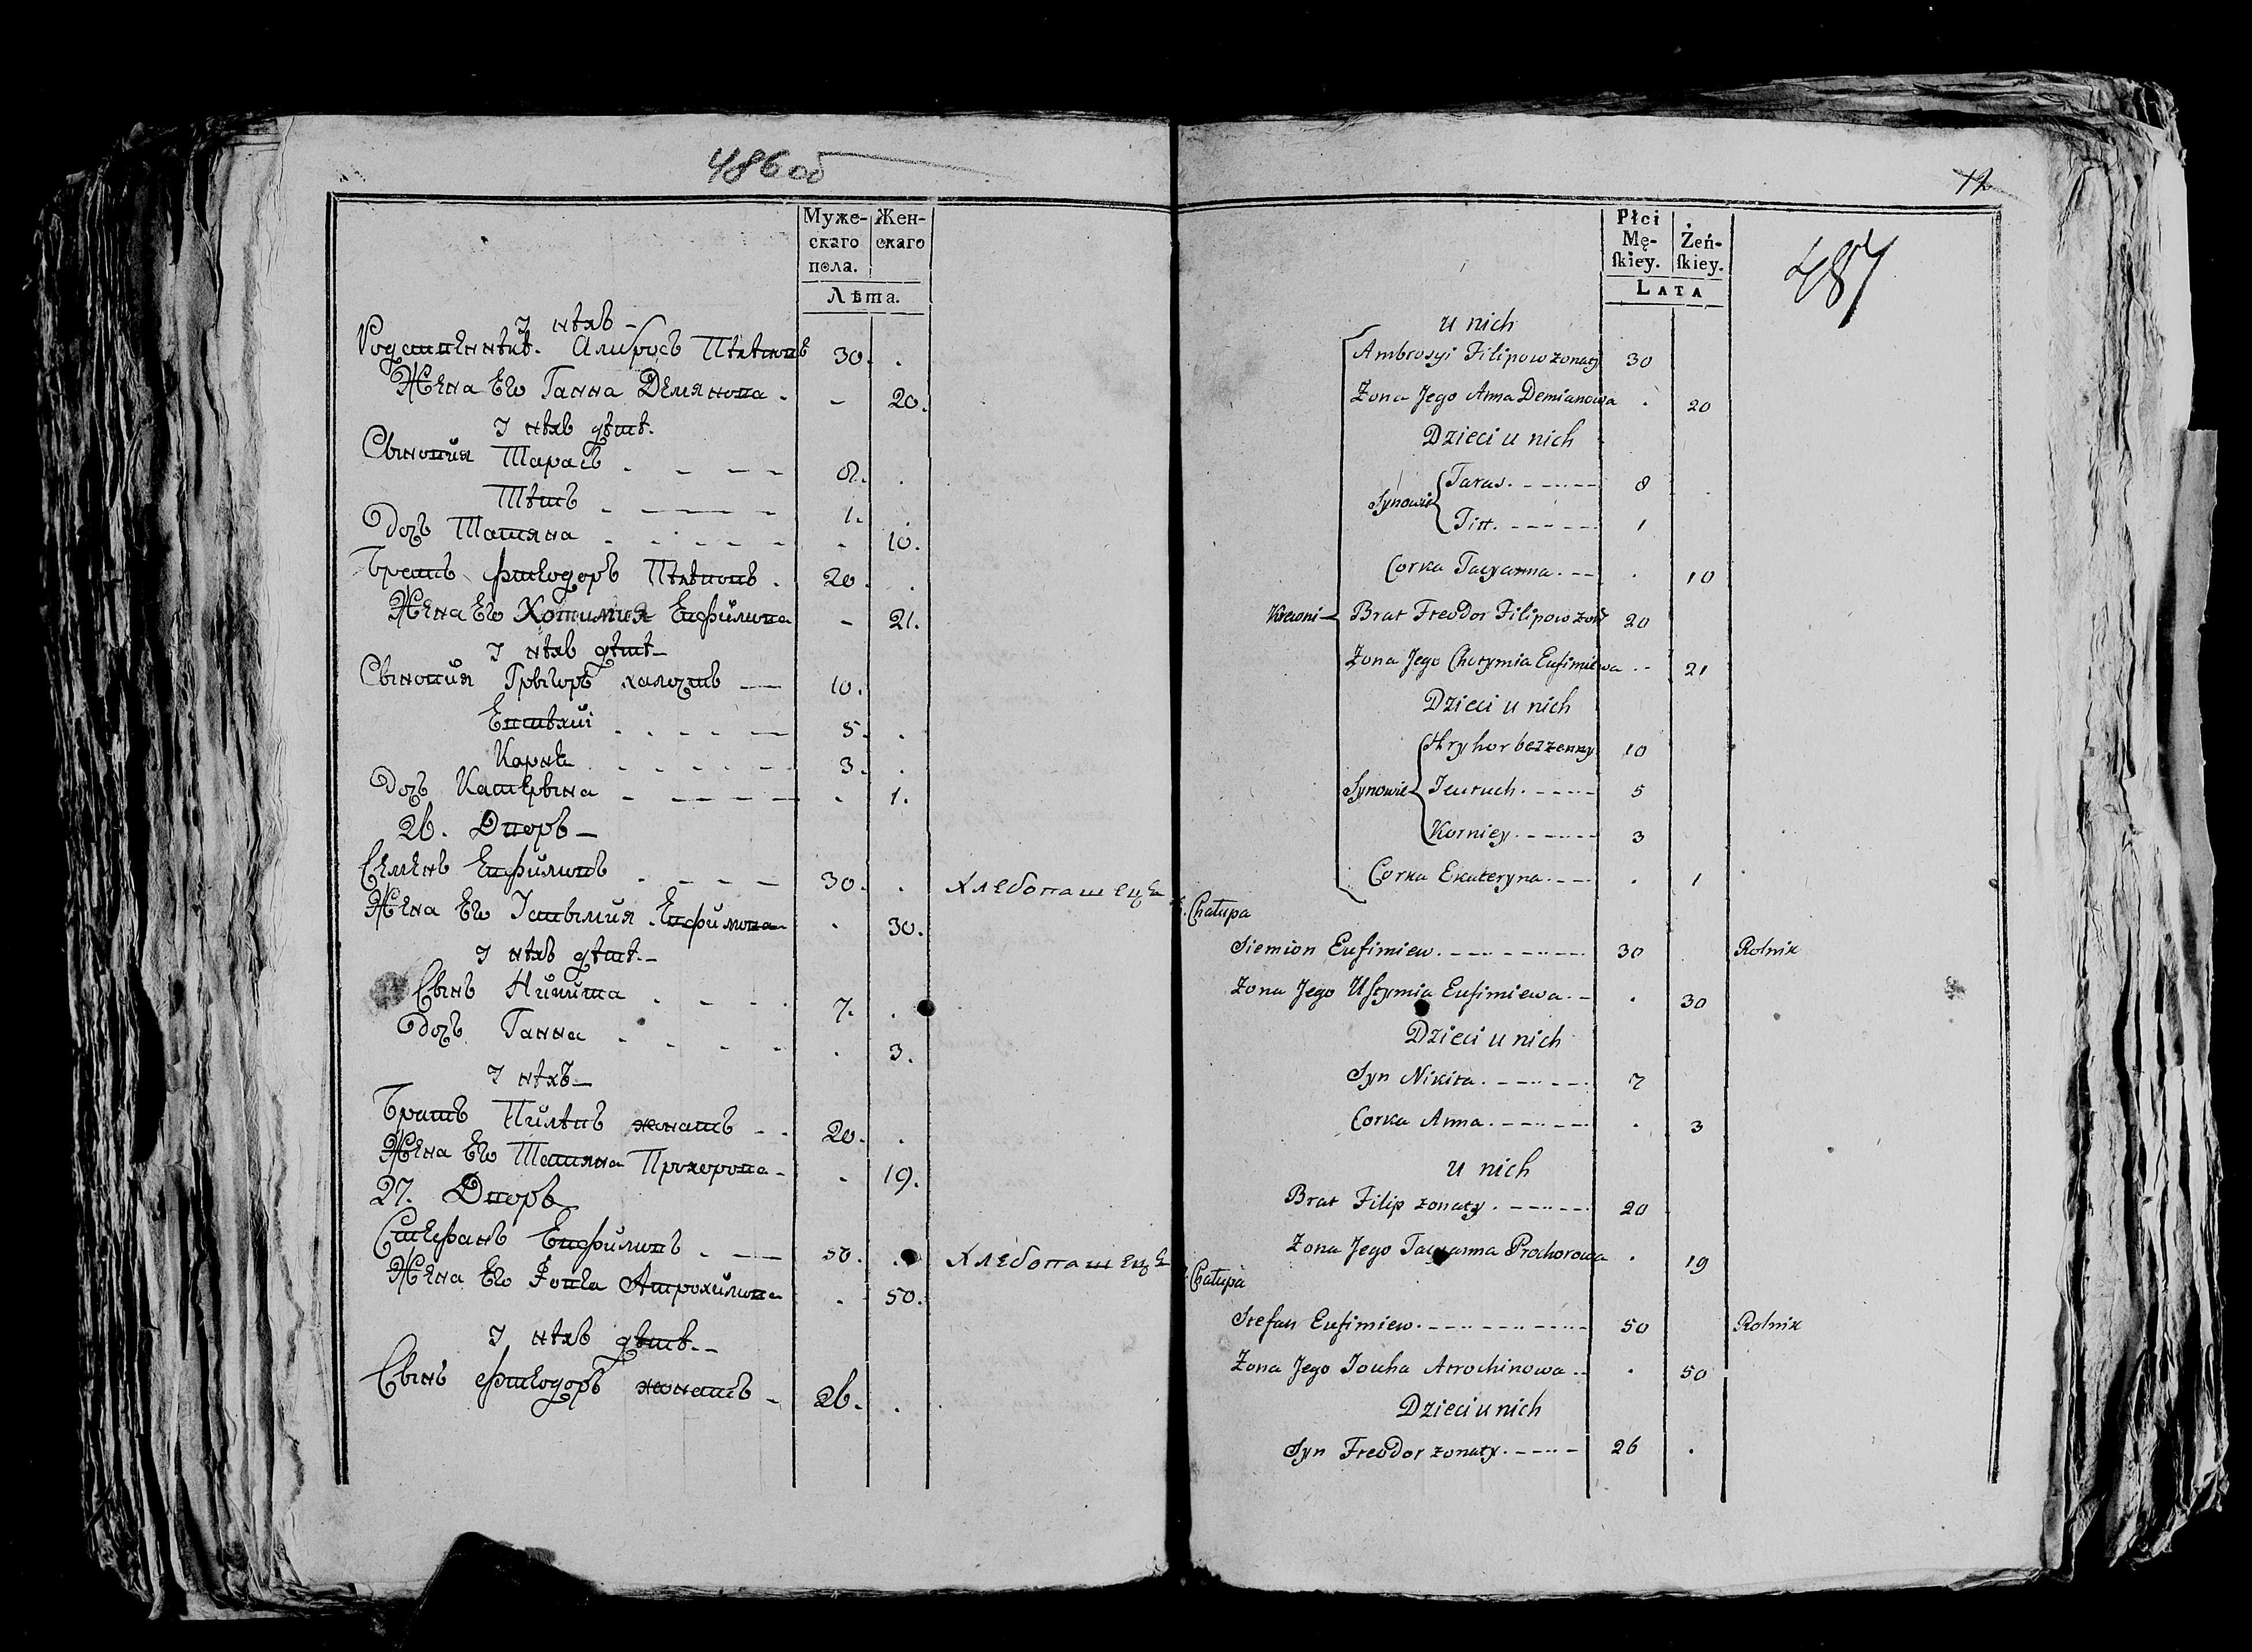 486 об
Муже-
скаго
пола.
Жен-
скаго
Лѣта.
У нѣхъ
Родственнѣкѣ. Амбросъ Пѣлѣповъ 30.
Жена Его Ганна Демянова - 20.
У нѣхъ дѣтѣ.
Сыновия Тарасъ 8.
Тѣтъ 1.
Дочь Татяна 10.
Братъ Фтеодоръ Пѣлѣповъ. 20.
Жена Его Хотимия Евфимова - 21.
У нѣхъ дѣтѣ
Сыновия Грыгоръ халостъ 10.
Евтѣхий 5.
Карнѣй 3.
Дочь Катерына 1.
26. Дворъ
Семенъ Евфимовъ 30. Хлебопашецъ
Жена Его Устымия Евфимова 30.
У нѣхъ дѣтѣ.
Сынъ Никита 7.
Дочь Ганна 3.
У нѣхъ
Братъ Пилѣпъ женатъ 20.
Жена Его Татяна Прохорова - 19.
27. Дворъ
Стефанъ Евфимовъ 50. Хлебопашецъ
Жена Его Атрохимова 50.
У нѣхъ дѣтѣ.
Сынъ Фтеодоръ женатъ 26.
12
487
Płci
Mę-
skiey.
Żeń-
skiey.
LATA
u nich
Ambrosyi Filipow żonaty 30
Żona Jego Anna Demianowa 20
Dzieci u nich
Synowie
Taras. 8
Titt. 1
Corka Tacyanna. 10
Krewni
Brat Fteodor Filipow żon 20
Żona Jego Chotymia Eufimiewa 21
Dzieci u nich
Hryhor bezżenny 10
Synowie Jeutuch. 5
Korniey. 3
Corka Ekateryna. 1
Chałupa
Siemion Eufimiew. 30 Rolnik
Żona Jego Ustymia Eufimiewa. 30
Dzieci u nich
Syn Nikita. 7
Corka Anna. 3
u nich
Brat Filip żonaty. 20
Żona Jego Tacyanna Prochorowa 19
Chałupa
Stefan Eufimiew. 50 Rolnik
Żona Jego Jouha Atrochimowa 50
Dzieci u nich
Syn Fteodor żonaty. 26